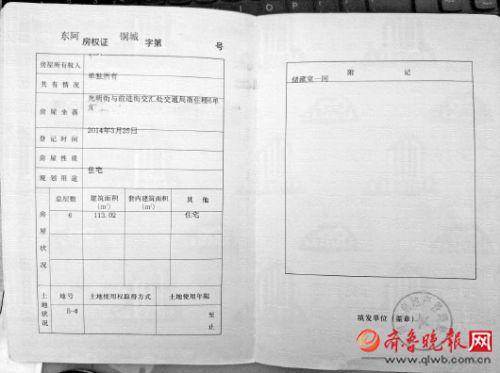 东阿 房权证 铜城 字第 号
房屋所有权人
共有情况 单独所有
房屋坐落 光明街与前进街交汇处交通局商住楼6单元
登记时间 2014年3月25日
房屋性质
规划用途 住宅
房屋状况
总层数 建筑面积(m²) 套内建筑面积(m²) 其他
6 113.02 住宅
土地状况
地号 土地使用权取得方式 土地使用年限
B-4 至
止
附记
储藏室一间
填发单位(盖章)
齐鲁晚报网
www.qlwb.com.cn